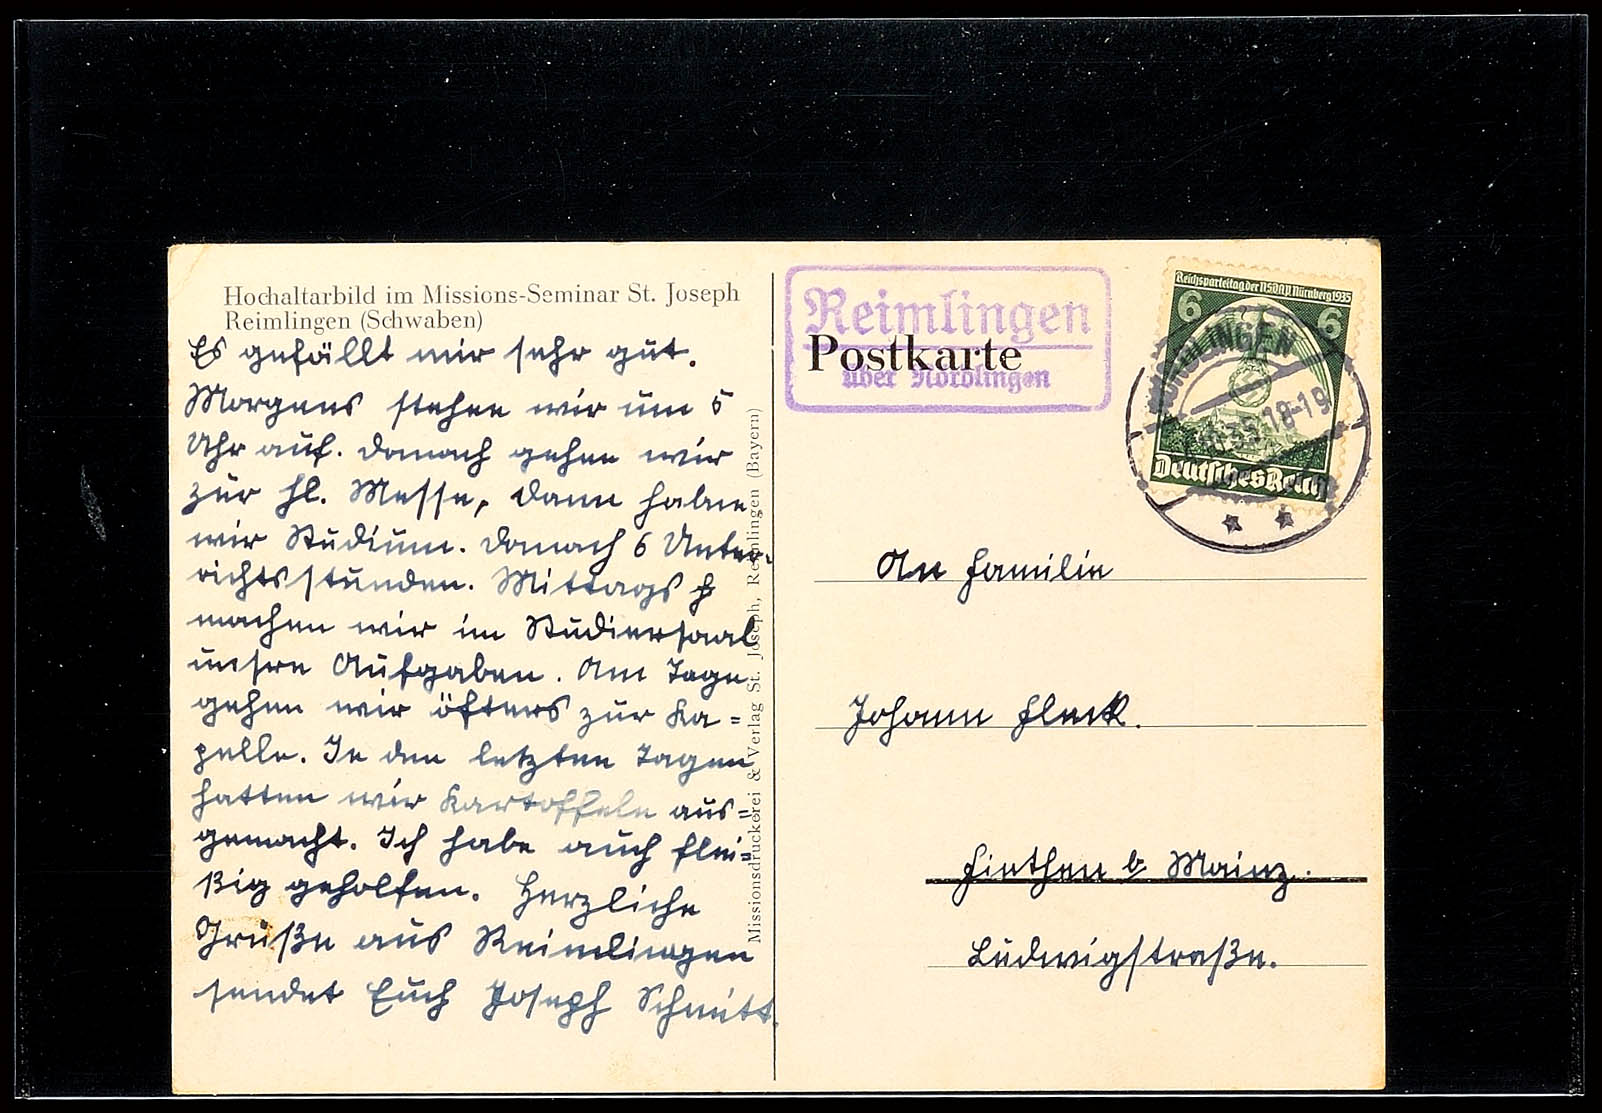 Hochaltarbild im Missions-Seminar St. Joseph
Reimlingen (Schwaben)
Es gefällt mir sehr gut.
Morgens stehen wir um 5
Uhr auf. Danach gehen wir
zur hl. Messe, dann haben
wir Studium. Danach 6 Unter-
richtsstunden. Mittags
machen wir im Studiersaal
unsre Aufgaben. Am Tage
gehen wir öfters zur Ka=
pelle. In den letzten Tagen
hatten wir Kartoffeln aus=
gemacht. Ich habe auch flei=
ßig geholfen. Herzliche
Grüße aus Reimlingen
sendet Euch Joseph Schmitt.
Missionsdruckerei & Verlag St. Joseph, Reimlingen (Bayern)
Reimlingen
Postkarte
über Nördlingen
Reichsparteitag der NSDAP Nürnberg 1935
6 6
NÖRDLINGEN
35 18-19
Deutsches Reich
An Familie
Johann Fleck.
Finthen b. Mainz.
Ludwigstraße.